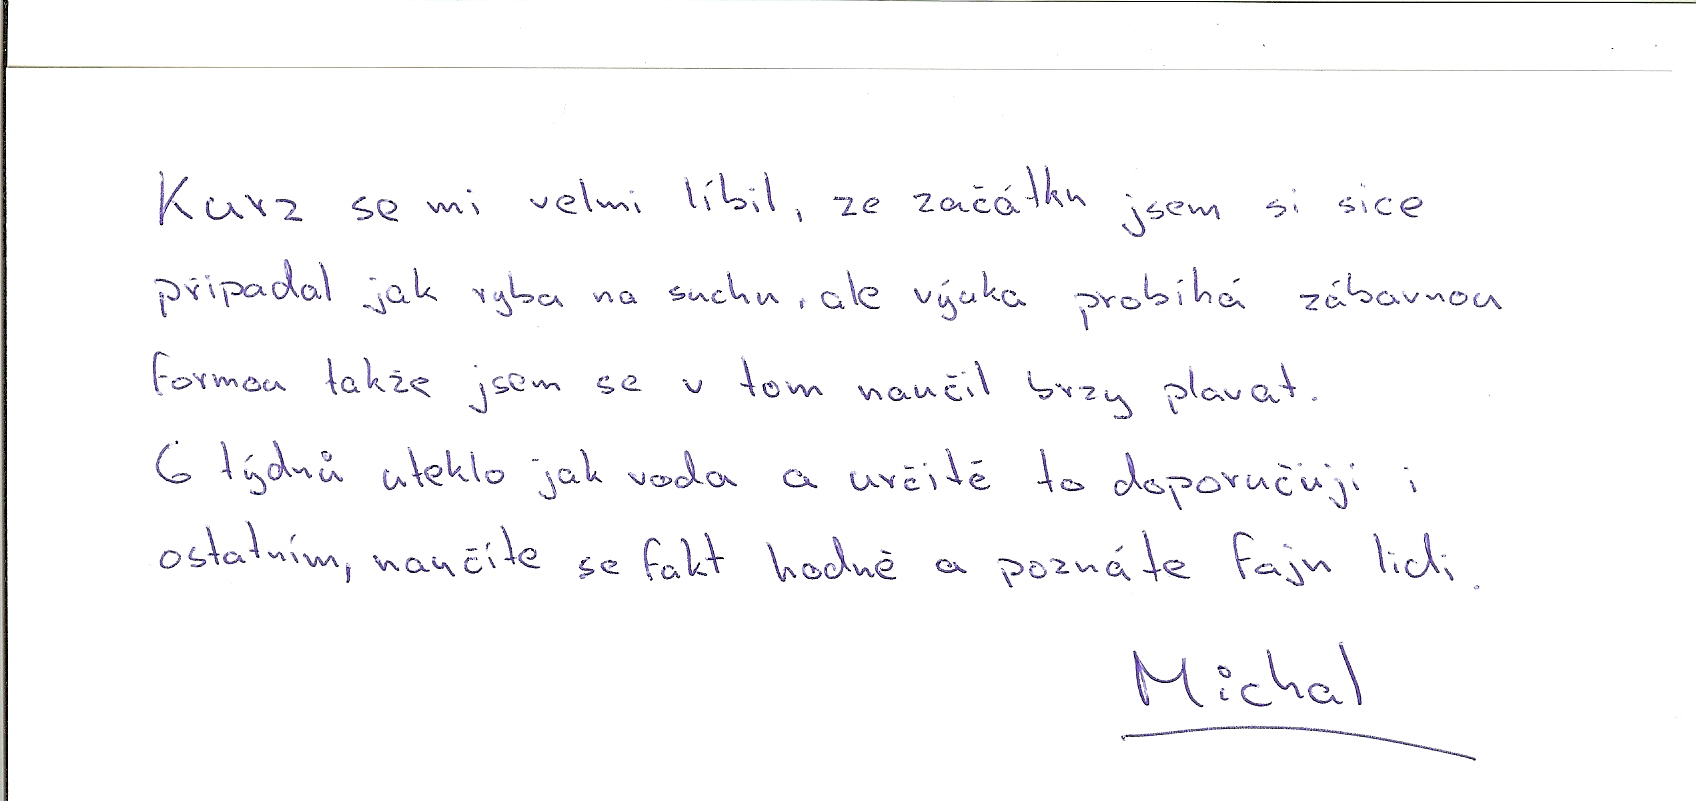 Kurz se mi velmi líbil, ze začátku jsem si sice
připadal jak ryba na suchu, ale výuka probíhá zábavnou
formou takže jsem se v tom naučil brzy plavat.
6 týdnů uteklo jak voda a určitě to doporučuji i
ostatním, naučíte se fakt hodně a poznáte fajn lidi.
Michal